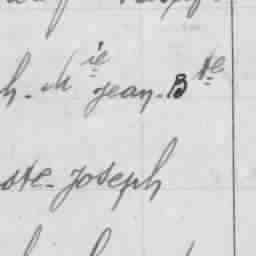 h. Mie jean. Bte
ste. joseph